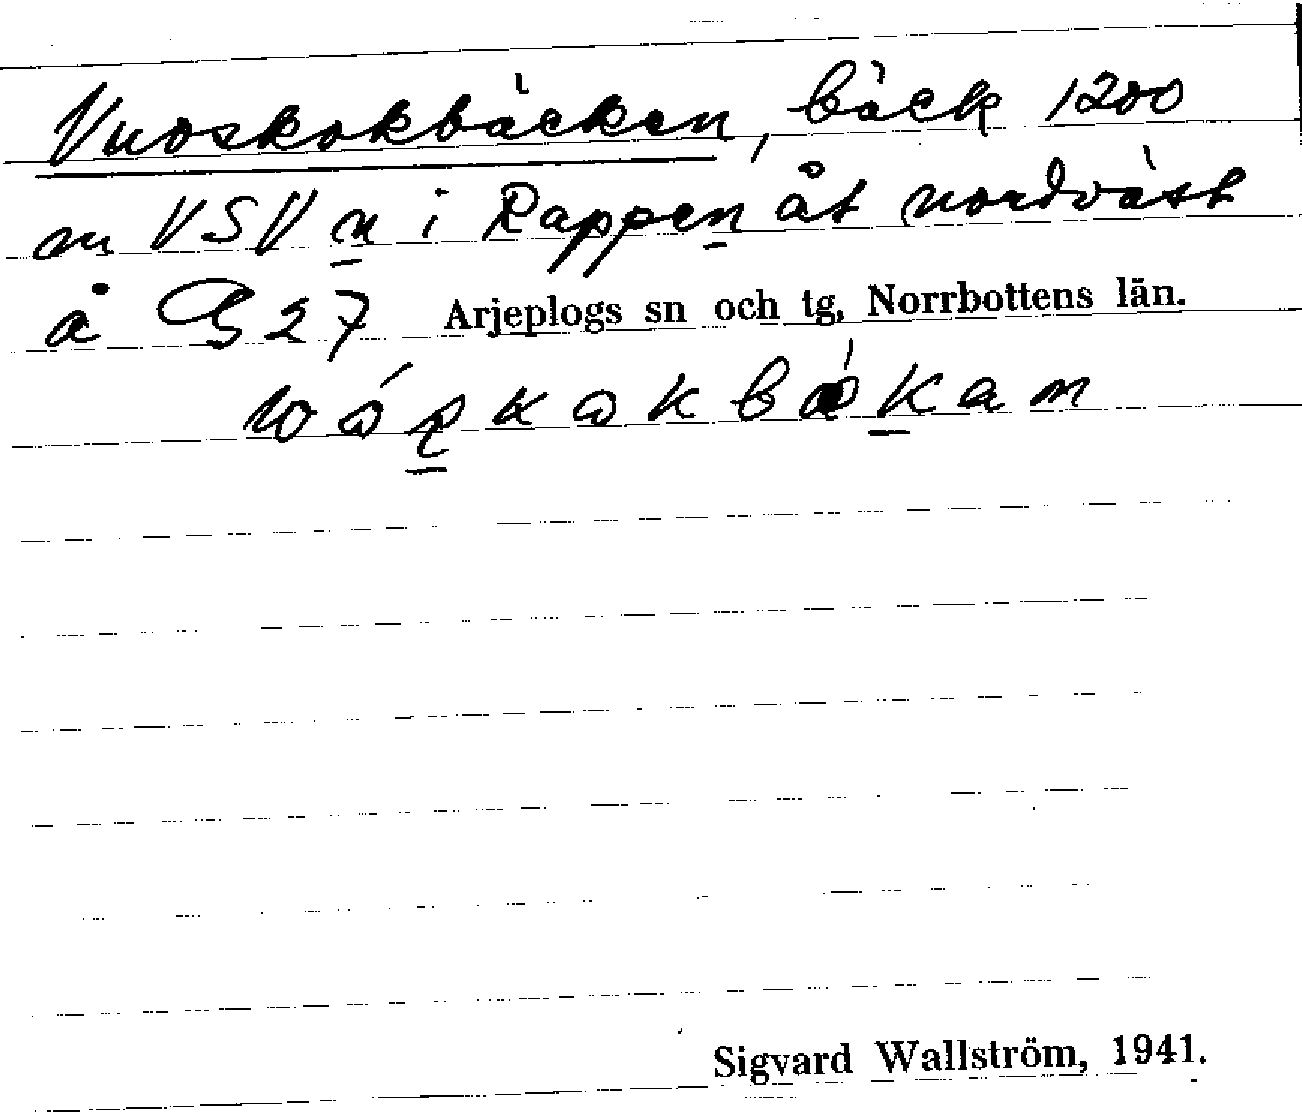 Vuoskokbäcken, bäck 1200
m VSV n i Rappen åt nordväst
å G 27 Arjeplogs sn och tg, Norrbottens län.
Sigvard Wallström, 1941.